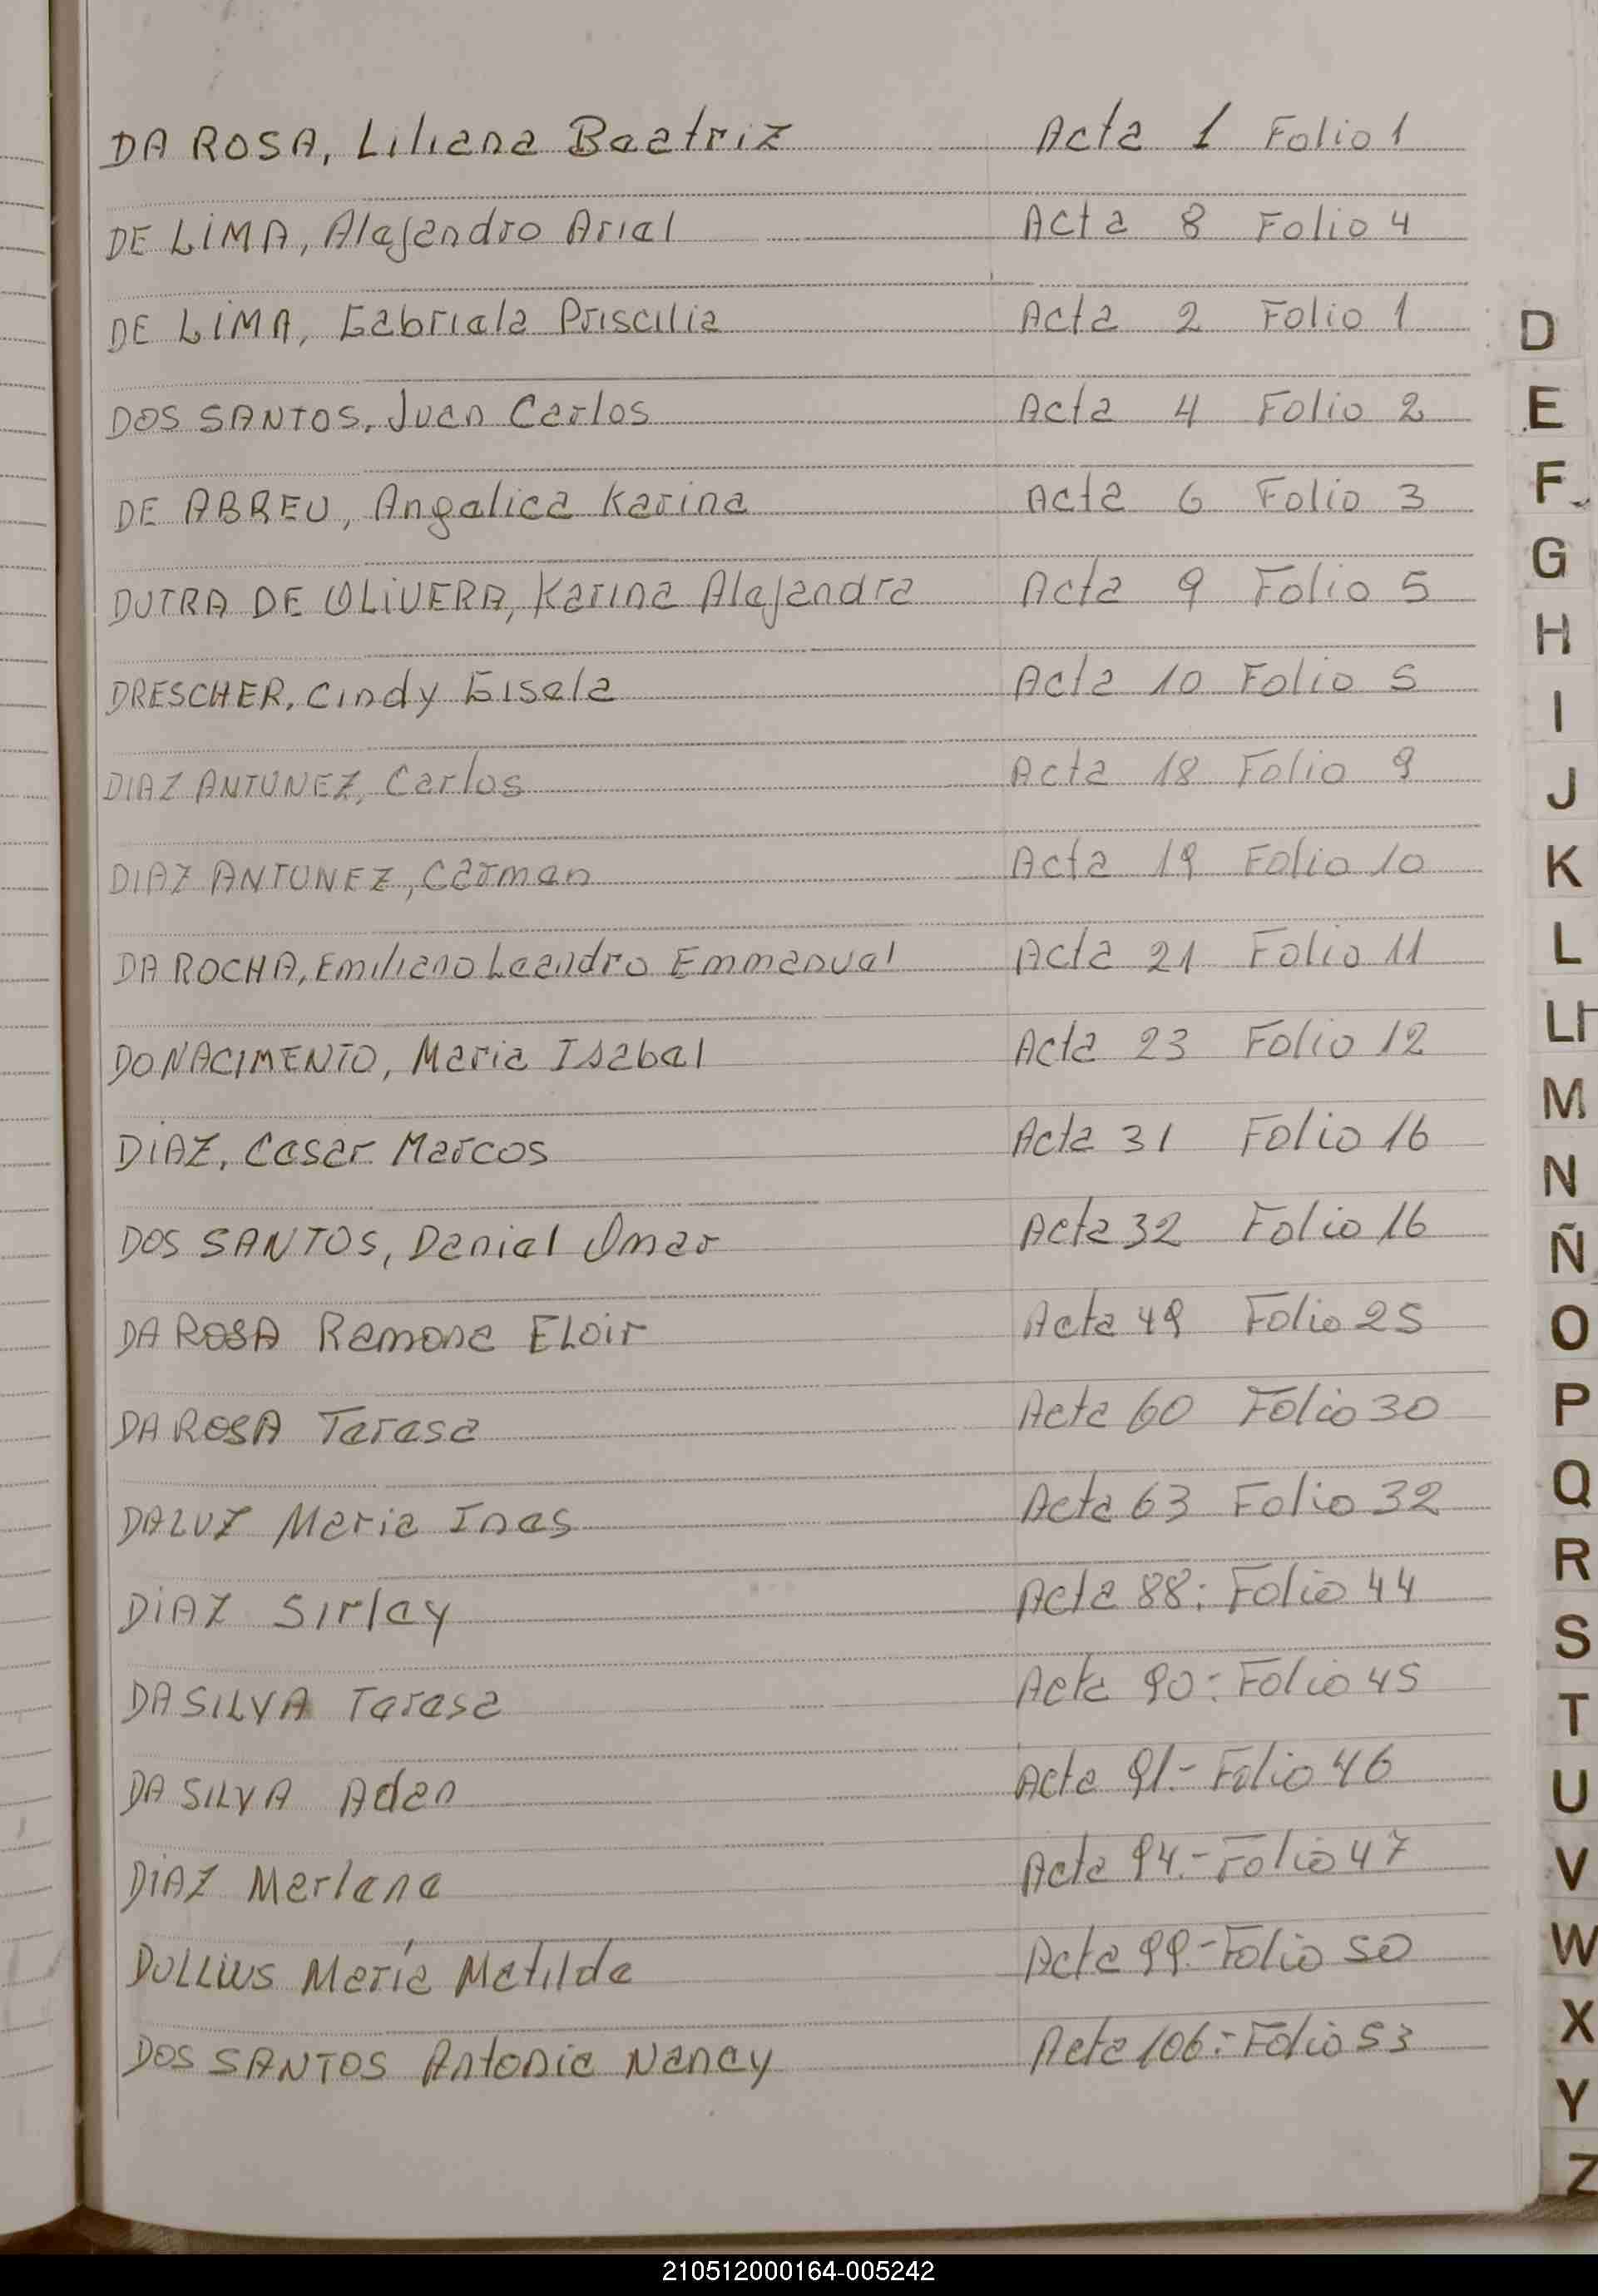 DA ROSA, Liliana Beatriz Acta 1 Folio 1
DE LIMA, Alejandro Ariel Acta 8 Folio 4
DE LIMA, Gabriela Priscilia Acta 2 Folio 1
DOS SANTOS, Juan Carlos Acta 4 Folio 2
DE ABREU, Angelica Karina Acta 6 Folio 3
DUTRA DE OLIVERA, Karina Alejandra Acta 9 Folio 5
DRESCHER, Cindy Gisela Acta 10 Folio 5
DIAZ ANTUNEZ, Carlos Acta 18 Folio 9
DIAZ ANTUNEZ, Carmen Acta 19 Folio 10
DA ROCHA, Emiliano Leandro Emmanuel Acta 21 Folio 11
DO NACIMENTO, Maria Isabel Acta 23 Folio 12
DIAZ, Cesar Marcos Acta 31 Folio 16
DOS SANTOS, Daniel Omar Acta 32 Folio 16
DA ROSA Ramona ELoir Acta 49 Folio 25
DA ROSA Teresa Acta 60 Folio 30
DALUZ Maria Ines Acta 63 Folio 32
DIAZ Sirley Acta 88: Folio 44
DA SILVA Teresa Acta 90: Folio 45
DA SILVA Adan Acta 91.- Folio 46
DIAZ Merlene Acta 94.- Folio 47
DULLIUS María Matilde Acta 99.- Folio 50
DOS SANTOS Antonia Nancy Acta 106:- Folio 53
D
E
F
G
H
I
J
K
L
Ll
M
N
Ñ
O
P
Q
R
S
T
U
V
W
X
Y
Z
210512000164-005242